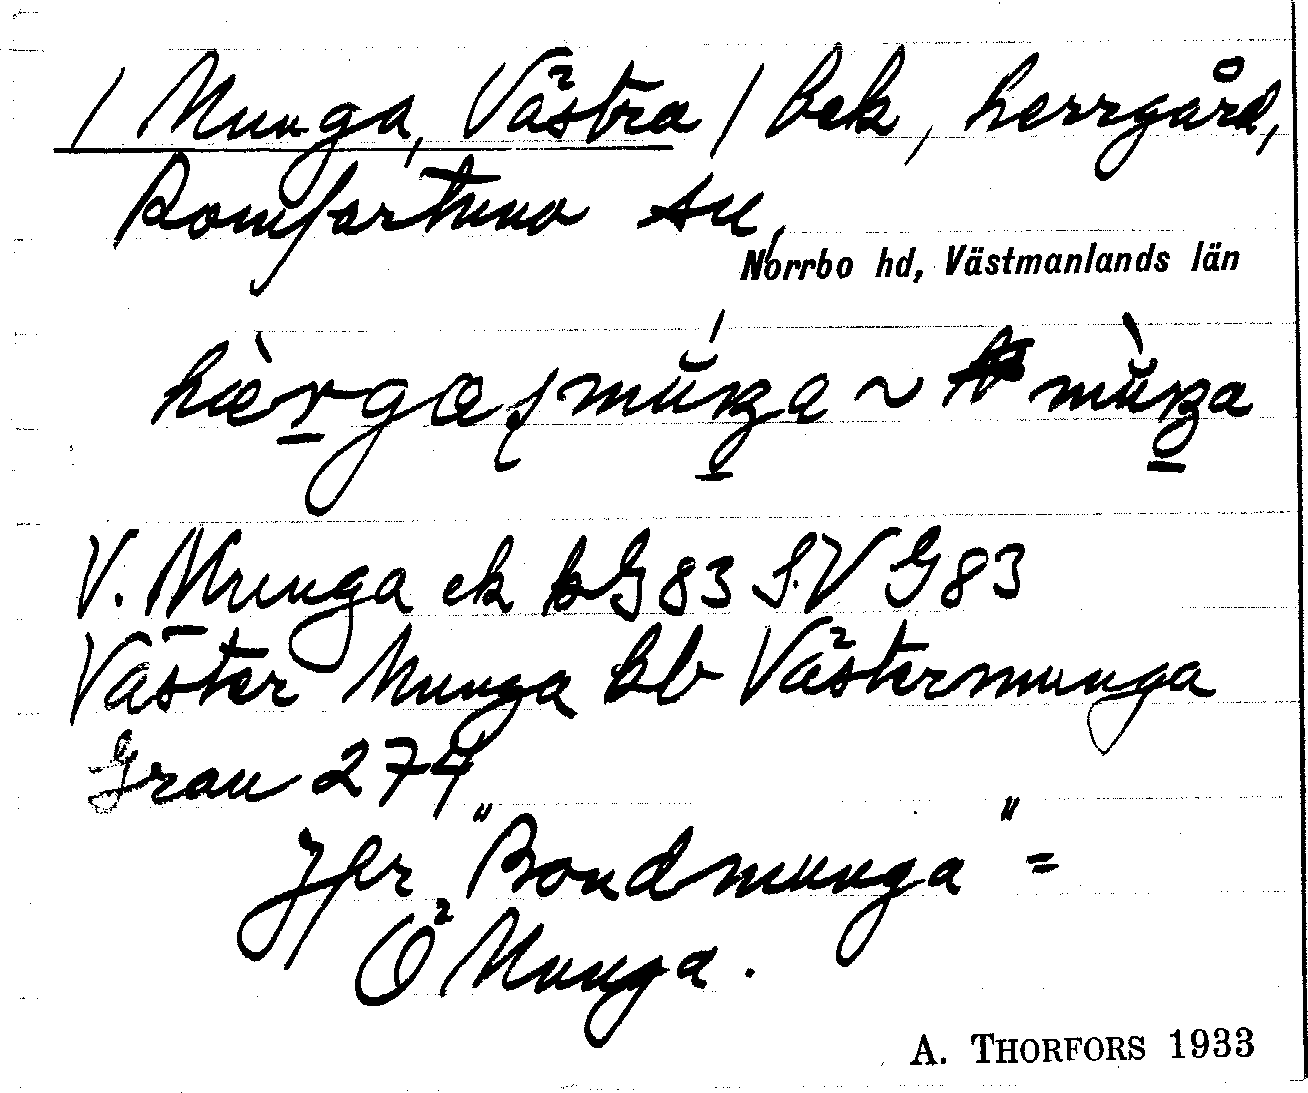 / Munga, Västra / bek, herrgård,
Romfartuna sn,
Norrbo hd, Västmanlands län
V. Munga ek kG 83 S.V G 83
Väster Munga bb Västermunga
Grau 274
Jfr "Bondmunga" =
Ö Munga.
A. THORFORS 1933